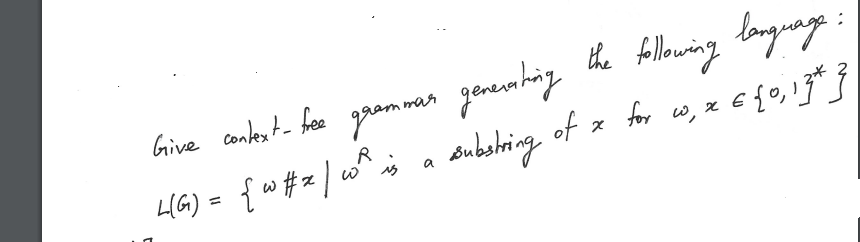 Give context-free grammar generating the following language:
L(G) = { w#x | w^R is a substring of x for w, x ∈ {0,1}* }